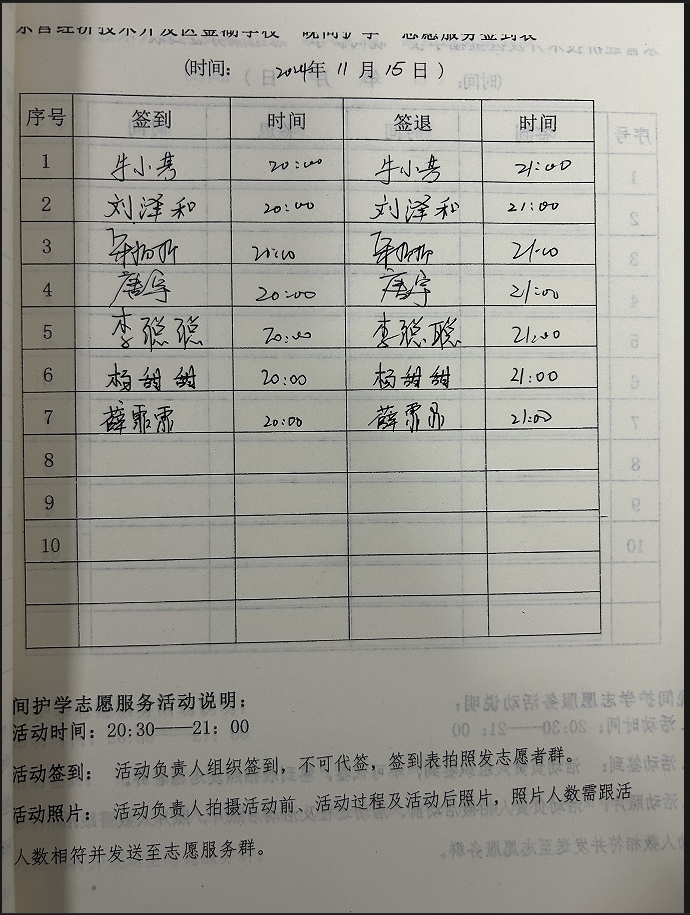 东营经济技术开发区金湖学校“晚间护学”志愿服务签到表
(时间: 2024年 11 月 15 日)
序号 签到 时间 签退 时间
1 牛小芳 20:00 牛小芳 21:00
2 刘泽和 20:00 刘泽和 21:00
3 20:00 21:00
4 唐宇 20:00 唐宇 21:00
5 李聪聪 20:00 李聪聪 21:00
6 杨甜甜 20:00 杨甜甜 21:00
7 薛霏霏 20:00 薛霏霏 21:00
8
9
10
间护学志愿服务活动说明:
活动时间:20:30——21: 00
活动签到: 活动负责人组织签到,不可代签,签到表拍照发志愿者群。
活动照片: 活动负责人拍摄活动前、活动过程及活动后照片,照片人数需跟活
人数相符并发送至志愿服务群。